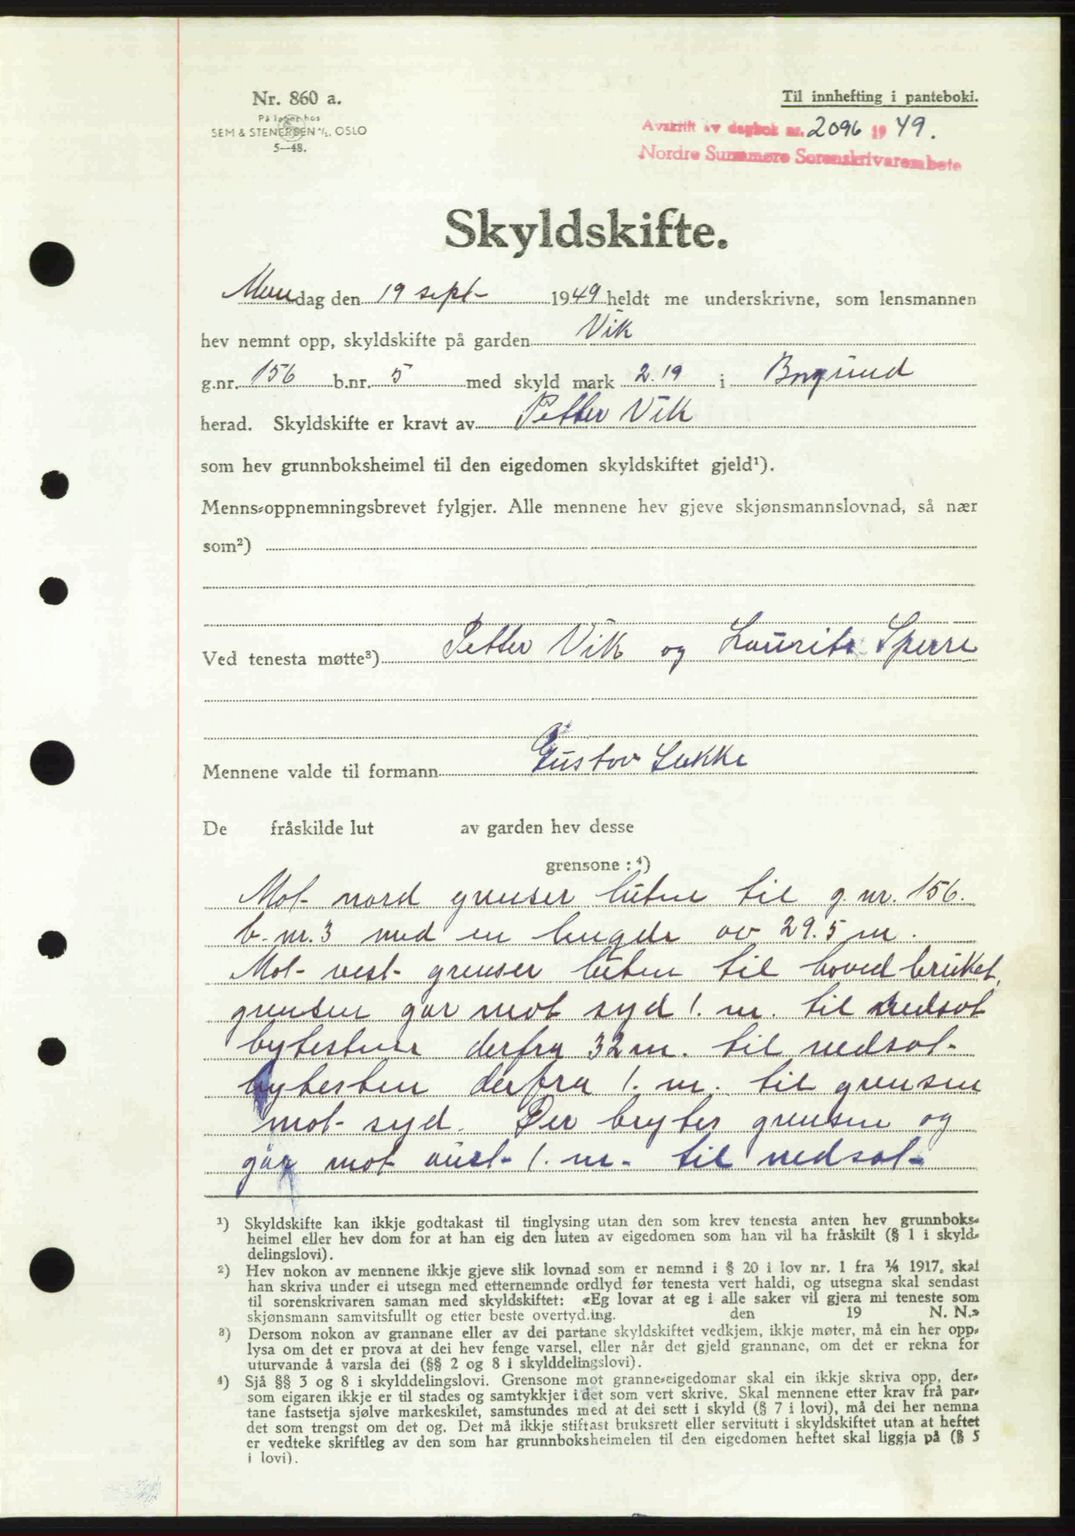 Nr. 860 a.
På lager hos
SEM & STENERSEN A/S, OSLO
5—48.
Til innhefting i panteboki.
Avskrift av dagbok nr. 2096 19 49.
Nordre Sunnmøre Sorenskrivarembete
Skyldskifte.
Mondag den 19 sept- 1949 heldt me underskrivne, som lensmannen
hev nemnt opp, skyldskifte på garden Vik
g.nr. 156 b.nr. 5 med skyld mark 2.19 i Borgund
herad. Skyldskifte er kravt av Petter Vik
som hev grunnboksheimel til den eigedomen skyldskiftet gjeld¹).
Menns-oppnemningsbrevet fylgjer. Alle mennene hev gjeve skjønsmannslovnad, så nær
som²)
Ved tenesta møtte³) Petter Vik og Laurits Sperre
Mennene valde til formann Gustav Lukke
De fråskilde lut av garden hev desse
grensone : ⁴)
Mot- nord grenser luten til g. nr. 156.
b. nr. 3 med en lengde av 29.5 m.
Mot- vest- grenser luten til hovedbruket,
grensen går mot syd 1. m. til nedsat
bytestein derfra 32 m. til nedsat-
bytestein derfra 1. m. til grensen
mot- syd. Der bryter grensen og
går mot aust- 1. m. til nedsat-
¹) Skyldskifte kan ikkje godtakast til tinglysing utan den som krev tenesta anten hev grunnboks-
heimel eller hev dom for at han eig den luten av eigedomen som han vil ha fråskilt (§ 1 i skyld-
delingslovi).
²) Hev nokon av mennene ikkje gjeve slik lovnad som er nemnd i § 20 i lov nr. 1 fra ¼ 1917, skal
han skriva under ei utsegn med etternemnde ordlyd før tenesta vert haldi, og utsegna skal sendast
til sorenskrivaren saman med skyldskiftet: «Eg lovar at eg i alle saker vil gjera mi teneste som
skjønsmann samvitsfullt og etter beste overtyding. den 19 N. N.»
³) Dersom nokon av grannane eller av dei partane skyldskiftet vedkjem, ikkje møter, må ein her opp-
lysa om det er prova at dei hev fenge varsel, eller når det gjeld grannane, om det er rekna for
uturvande å varsla dei (§§ 2 og 8 i skylddelingslovi).
⁴) Sjå §§ 3 og 8 i skylddelingslovi. Grensone mot granne-eigedomar skal ein ikkje skriva opp, der-
som eigaren ikkje er til stades og samtykkjer i det som vert skrive. Skal mennene etter krav frå par-
tane fastsetja sjølve markeskilet, samstundes med at dei sett i skyld (§ 7 i lovi), må dei her nemna
det som trengst om det og. Det må ikkje stiftast bruksrett eller servitutt i skyldskiftet utan at heftet
er vedteke skriftleg av den som har grunnboksheimelen til den eigedomen heftet skal liggja på (§ 5
i lovi).